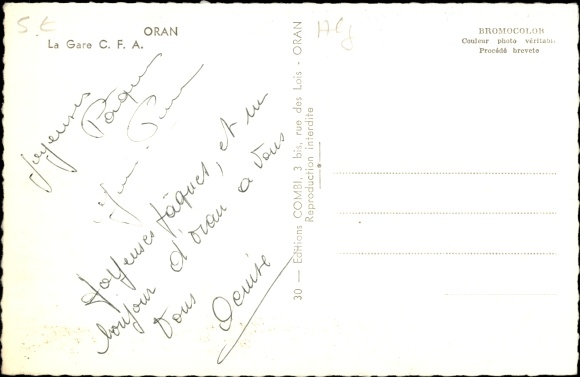 5 €
ORAN
La Gare C. F. A.
Alg
BROMOCOLOR
Couleur photo véritable
Procédé breveté
Joyeuses
Pâques
Joyeuses Pâques, et un
bonjour d'oran a vous
Tous
Denise
30 — Editions COMBI, 3 bis, rue des Lois - ORAN
Reproduction interdite